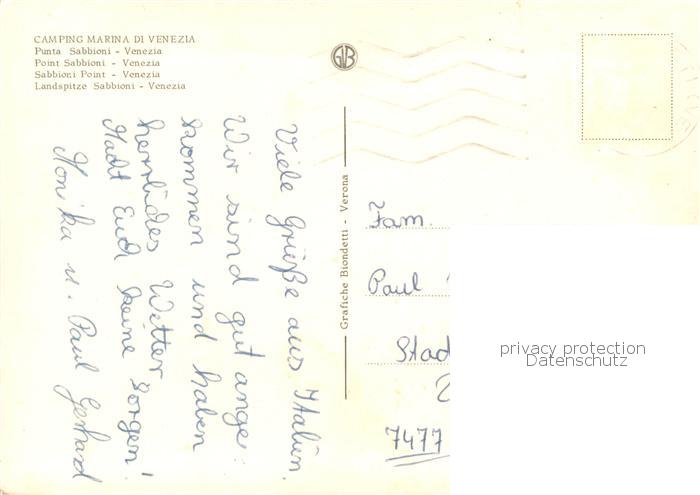 CAMPING MARINA DI VENEZIA
Punta Sabbioni - Venezia
Point Sabbioni - Venezia
Sabbioni Point - Venezia
Landspitze Sabbioni - Venezia
Viele Grüße aus Italien.
Wir sind gut ange-
kommen und haben
herrliches Wetter
Macht Euch keine Sorgen!
Monika u. Paul Gerhard
Grafiche Biondetti - Verona
Fam.
Paul
Stad
7477
privacy protection
Datenschutz